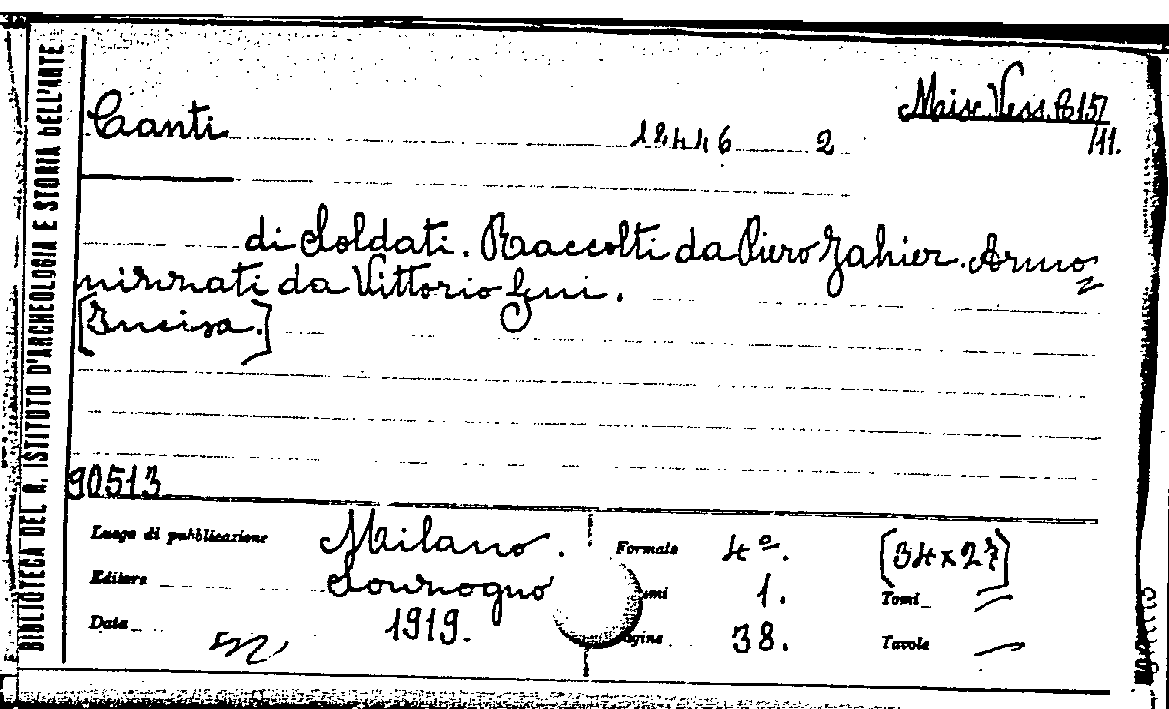 BIBLIOTECA DEL R. ISTITUTO D'ARCHEOLOGIA E STORIA DELL'ARTE
Misc. Vess. B 157
/11.
Canti 18446 2
di Soldati. Raccolti da Piero Jahier. Armo
nizzati da Vittorio Gui.
[Incisa.]
90513
Luogo di pubblicazione Milano.
Editore Sonzogno
Data 1919.
Formato 4º. [34x27]
1. Tomi =
38. Tavole —